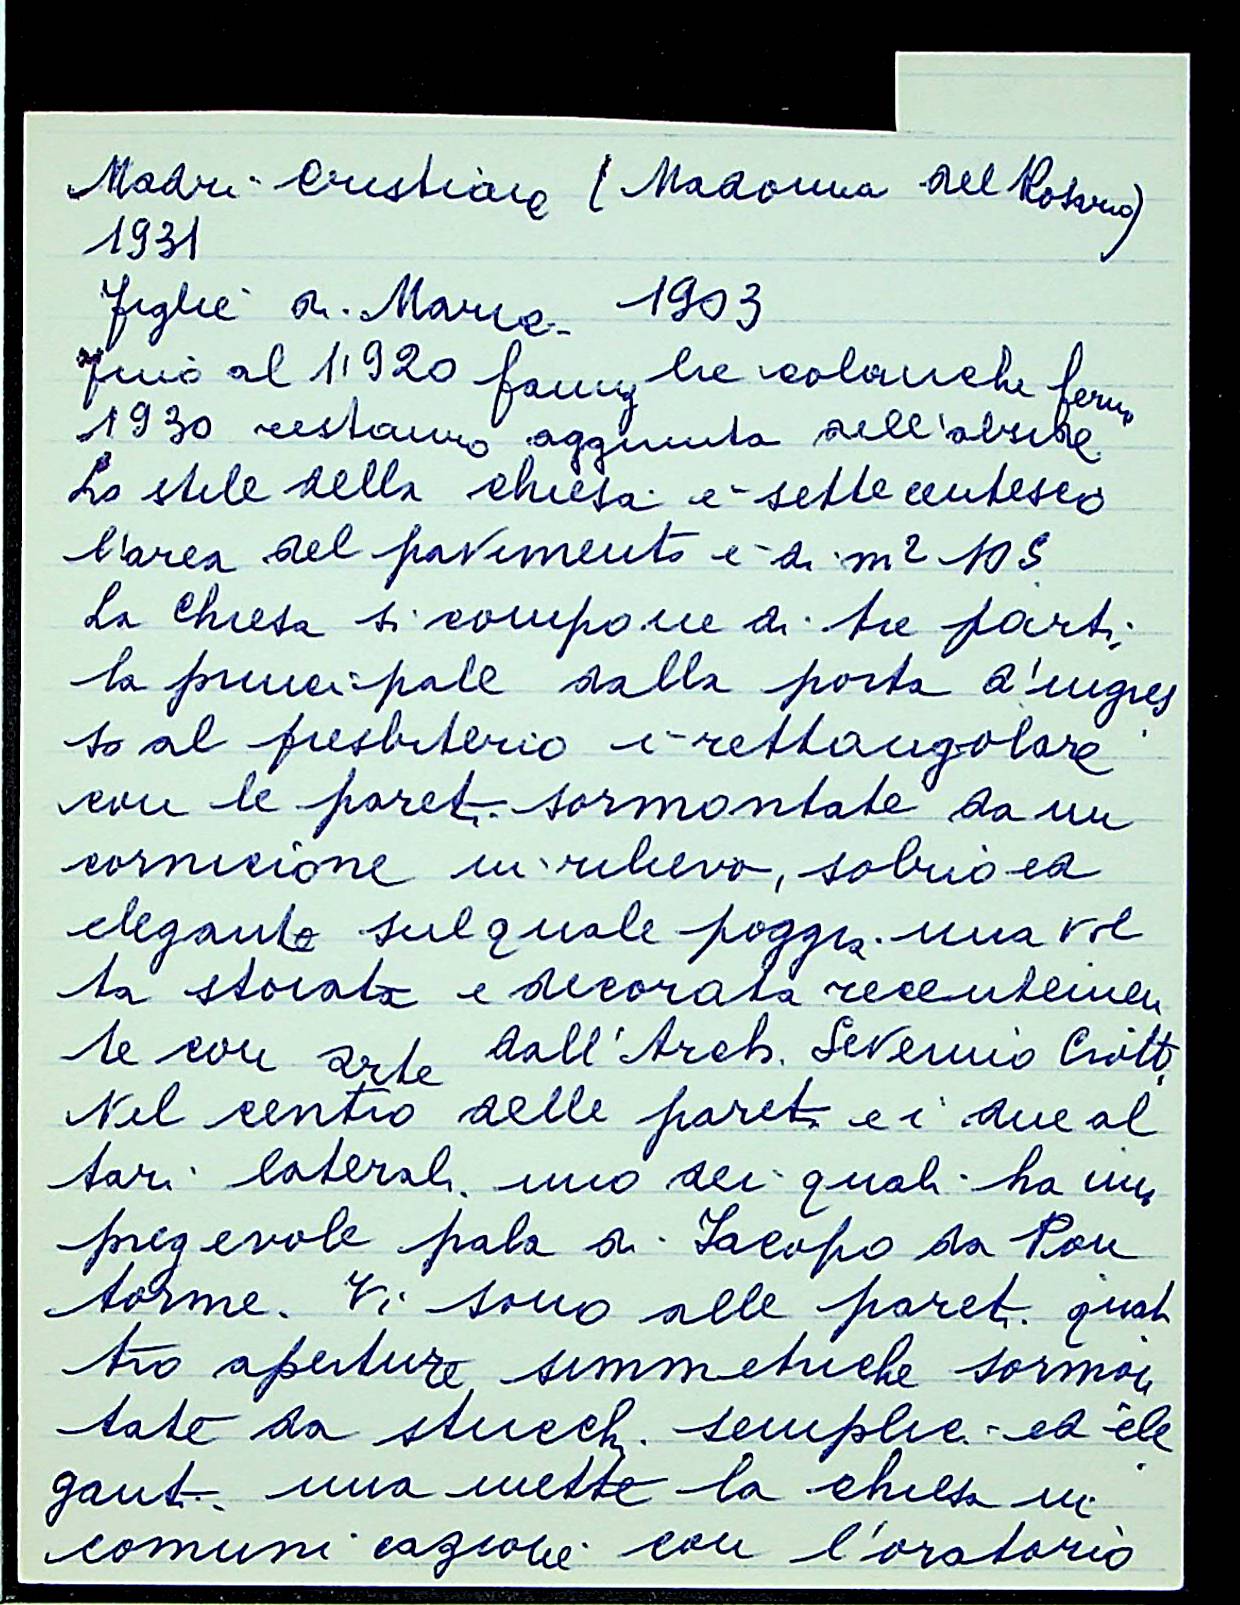 Madri Cristiane (Madonna del Rosario)
1931
Figlie di Maria - 1903
Fino al 1920 famiglie coloniche
1930 restauro aggiunta dell'abside
Lo stile della chiesa è settecentesco
l'area del pavimento è di m2 105
La Chiesa si compone di tre parti,
la principale dalla porta d'ingres
so al presbiterio è rettangolare
con le pareti sormontate da un
cornicione in rilievo, sobrio ed
elegante sul quale poggia una vol
ta stoiata e decorata recentemen
te con arte dall'Arch. Severino Crott.
Nel centro delle pareti e i due al
tari laterali uno dei quali ha un
pregevole pala di Iacopo da Pon
torme. Vi sono alle pareti quat
tro aperture simmetriche sormon
tate da stucchi semplici ed ele
ganti. una mette la chiesa in
comunicazione con l'oratorio